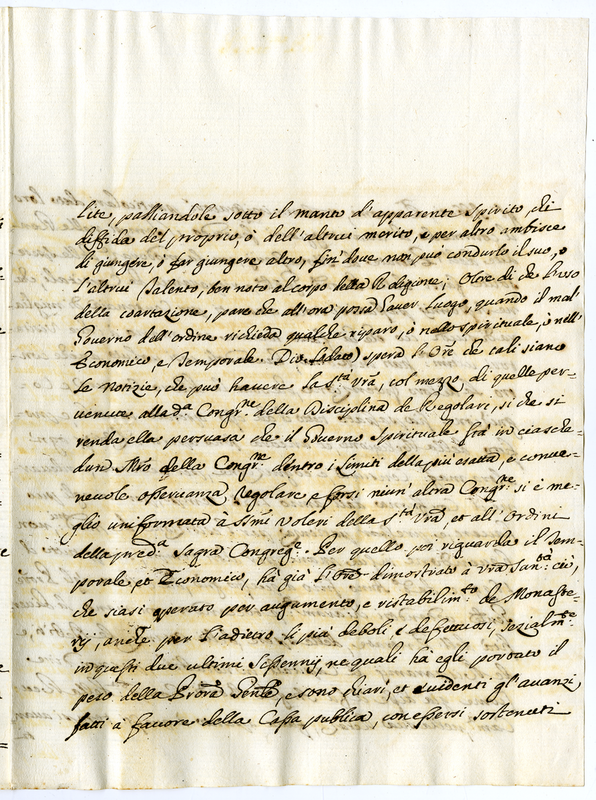 lite, palliandole sotto il manto d'apparente spirito, chi
diffida del proprio, ò dell'altrui merito, e per altro ambisce
di giungere, ò far giungere altro, fin' doue non può condurlo il suo, o
l'altrui Talento, ben noto al corpo della Religione; Oltre di che l'uso
della coartazione, pare che all'ora possa hauer luogo, quando il mal'
Gouerno dell'ordine richieda qualche riparo, ò nello spirituale, ò nell'
Economico, e Temporale. Dio lodato) spera l'Ore che tali siano
le notizie, che può hauere la Stà Vrã, col mezzo, di quelle per=
uenute alla da Congrne della Disciplina de Regolari, si che si
renda ella persuasa che il Gouerno Spirituale stà in ciasche=
dun Mro della Congrne dentro i limiti della più esatta, e conue=
neuole osseruanza regolare, e forsi niun' altra Congrne si è me=
glio uniformata à SSmi Voleri della Stà Vrã, et all' Ordini
della preda Sagra Congrege. Per quello poi riguarda il Tem=
porale, et Economico, hà già l'Ore dimostrato à Vrã Santà ciò,
che siasi operato per augumento, e ristabilimto de Monaste=
rij, anche per l'adietro li più deboli, e defettuosi, spezialmte
in questi due ultimi Sessennij, ne quali hà egli portato il
peso della Prorã Genle, e sono chiari, et euidenti gl'auanzi
fatti à fauore della Cassa publica, con essersi sostenuti